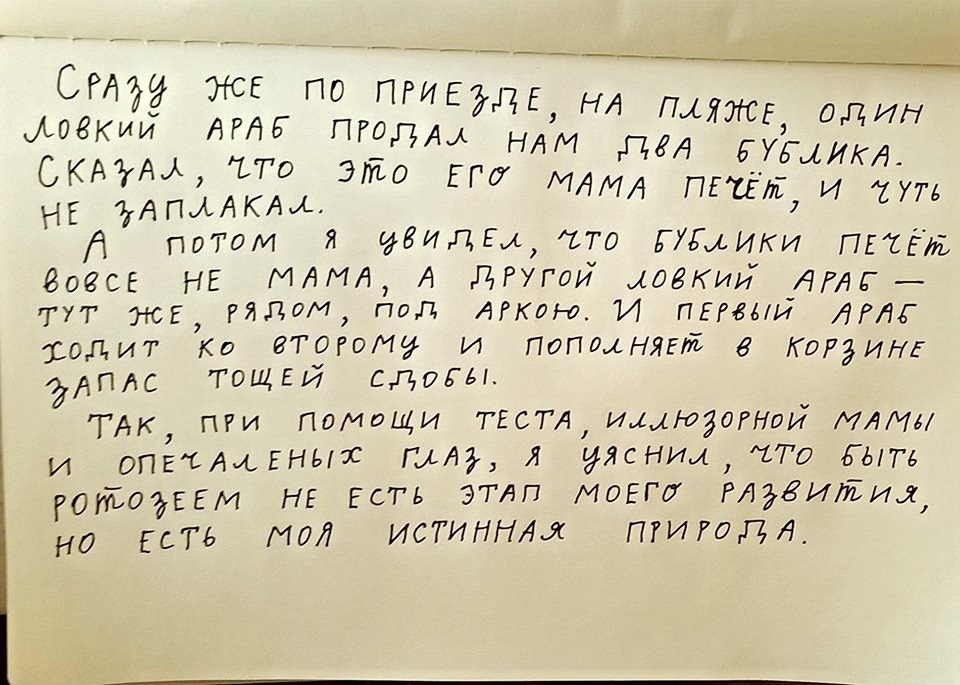 Сразу же по приезде, на пляже, один
ловкий араб продал нам два бублика.
Сказал, что это его мама печёт, и чуть
не заплакал.
А потом я увидел, что бублики печёт
вовсе не мама, а другой ловкий араб —
тут же, рядом, под аркою. И первый араб
ходит ко второму и пополняет в корзине
запас тощей сдобы.
Так, при помощи теста, иллюзорной мамы
и опечаленых глаз, я уяснил, что быть
ротозеем не есть этап моего развития,
но есть моя истинная природа.